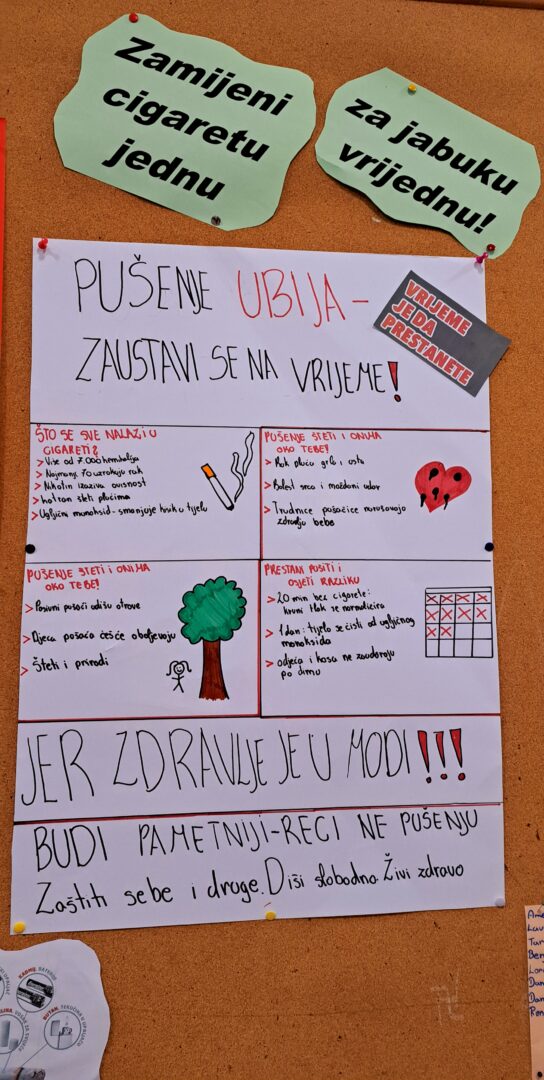 Zamijeni
cigaretu
jednu
za jabuku
vrijednu!
PUŠENJE UBIJA-
ZAUSTAVI SE NA VRIJEME!
VRIJEME
JE DA
PRESTANETE
ŠTO SE SVE NALAZI U
CIGARETI?
> Više od 7.000 kemikalija
> Najmanje 70 uzrokuju rak
> Nikotin izaziva ovisnost
> katran šteti plućima
> Ugljični monoksid - smanjuje kisik u tijelu
PUŠENJE ŠTETI I ONIMA
OKO TEBE!
> Rak pluća grla i usta
> Bolest srca i moždani udar
> Trudnice pušačice narušavaju
zdravlje bebe
PUŠENJE ŠTETI I ONIMA
OKO TEBE!
> Pasivni pušači udišu otrove
> Djeca pušača češće obolijevaju
> Šteti i prirodi
PRESTANI PUŠITI I
OSJETI RAZLIKU
> 20 min bez cigarete:
krvni tlak se normalizira
> 1 dan: tijelo se čisti od ugljičnog
monoksida
> odjeća i kosa ne zaudaraju
po dimu
JER ZDRAVLJE JE U MODI!!!
BUDI PAMETNIJI-RECI NE PUŠENJU
Zaštiti sebe i druge. Diši slobodno. Živi zdravo
KADMIJ, BATERIJE
BUTAN, TEKUĆINA U UPALJAČU